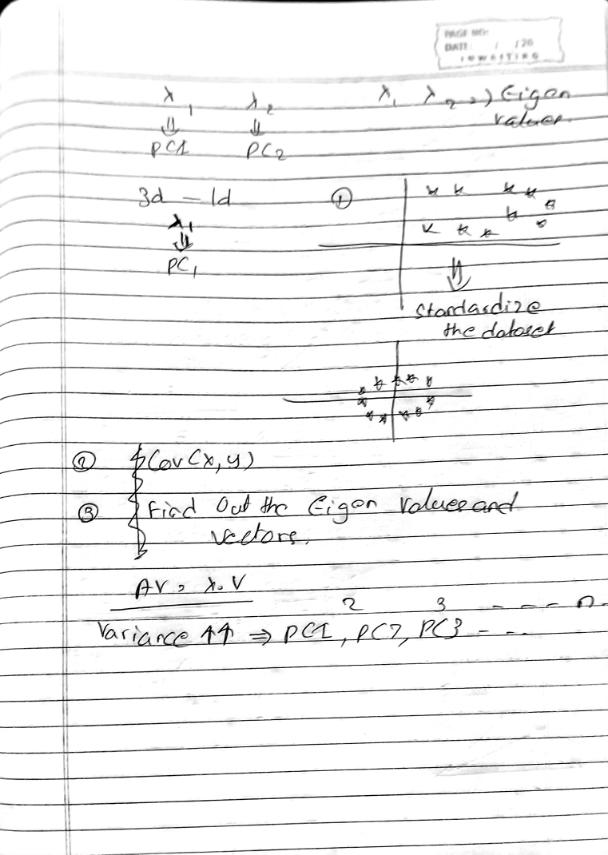 PAGE NO:
DATE: / /20
λ1 λ2 λ1 λ2 => Eigen
values.
⇓ ⇓
PC1 PC2
3d – 1d ①
λ1
⇓
PC1
⇓
Standardize
the dataset
② Cov(x,y)
③ Find Out the Eigen Values and
Vectors.
AV = λ.V
2 3 ---- n.
Variance ↑↑ ⇒ PC1, PC2, PC3 - --